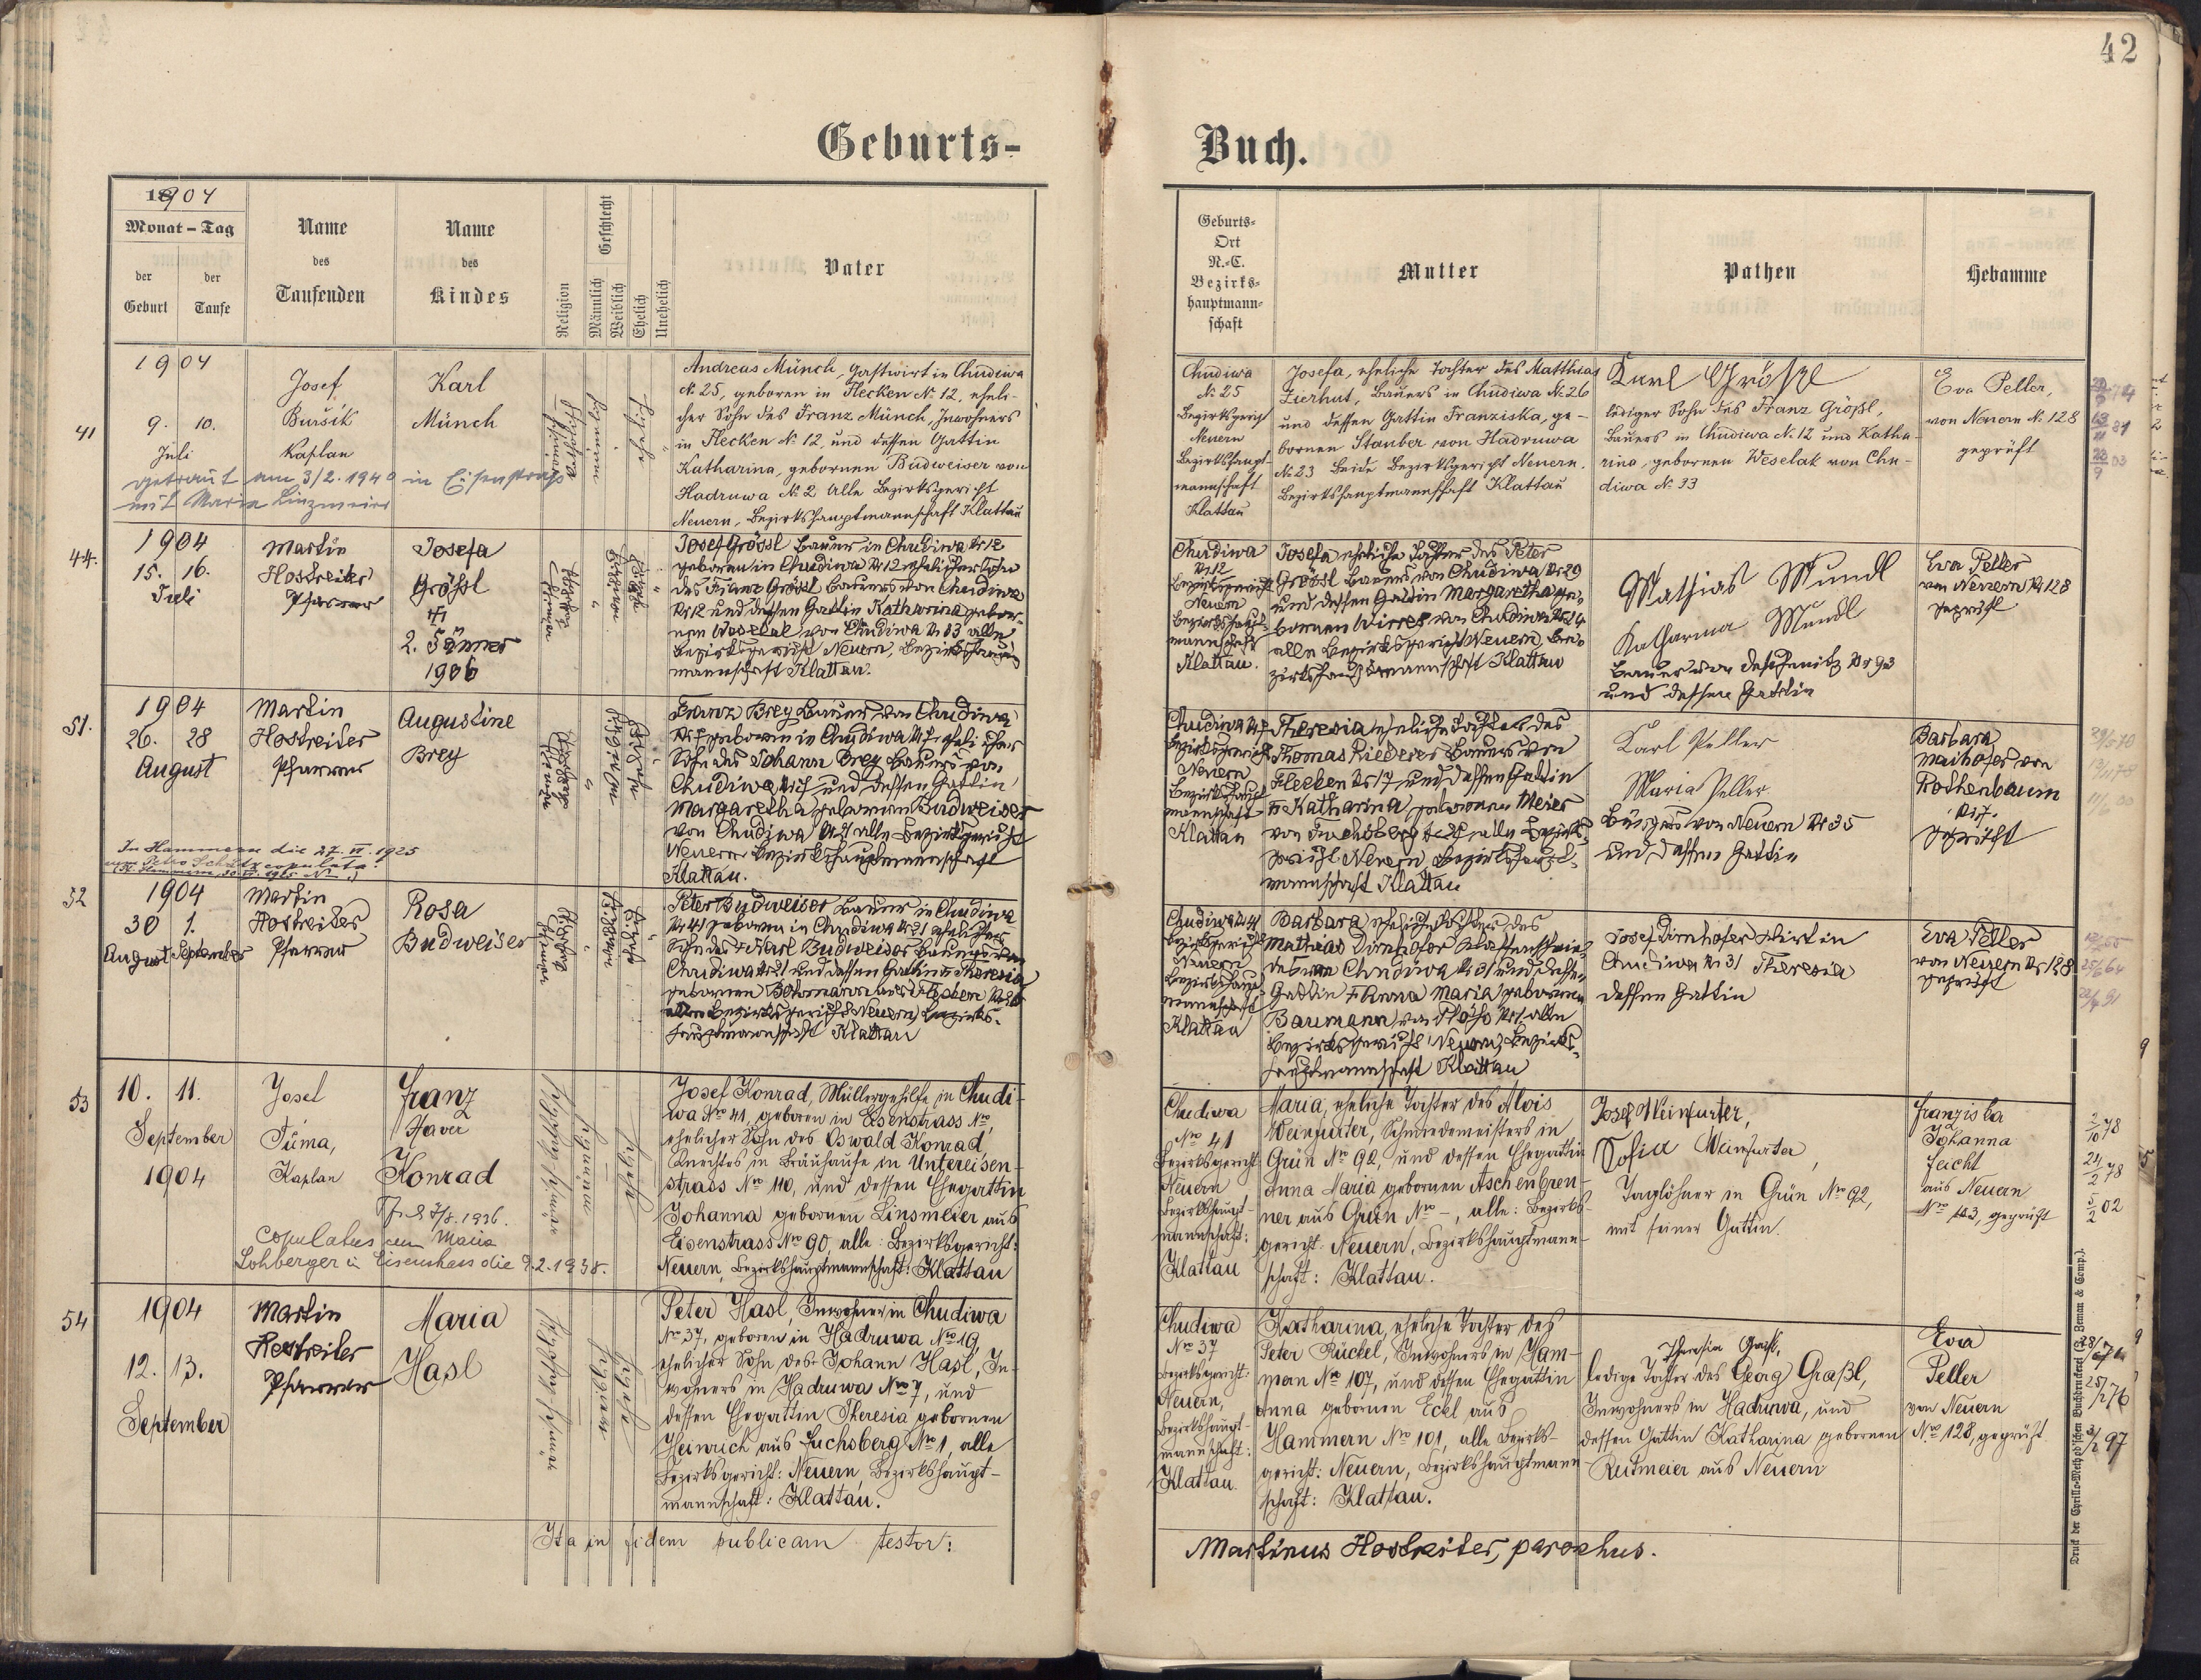 42
Geburts-
Buch.
1904
Monat - Tag
der Geburt
der Taufe
Name des Taufenden
Name des Kindes
Religion
Geschlecht
Männlich
Weiblich
Ehelich
Unehelich
Vater
Geburts-
Ort
N.-C.
Bezirks-
hauptmann-
schaft
Mutter
Pathen
Hebamme
41
1904
9. 10.
Juli
Josef
Bušik
Kaplan
Karl
Münch
getraut am 3/2. 1940 in Eisenstraß
mit Maria Linzmeier
Andreas Münch, Gastwirt in Chudiwa
N. 25, geboren in Flecken N. 12, eheli-
cher Sohn des Franz Münch, Inwohners
in Flecken N. 12 und dessen Gattin
Katharina, gebornen Budweiser von
Hadruwa N. 2 Alle Bezirksgericht
Neuern, Bezirkshauptmannschaft Klattau
Chudiwa
N. 25
Bezirksgericht
Neuern
Bezirkshaupt-
mannschaft
Klattau
Josefa, eheliche Tochter des Matthias
Zierhut, Bauers in Chudiwa N. 26
und dessen Gattin Franziska, ge-
bornen Stauber von Hadruwa
N. 23 beide Bezirksgericht Neuern.
Bezirkshauptmannschaft Klattau
Karl Größl
lediger Sohn des Franz Größl,
Bauers in Chudiwa N. 12 und Katha-
rina, gebornen Weselak von Chu-
diwa N. 33
Eva Peller,
von Neuern N. 128
geprüft
44.
1904
15. 16.
Juli
Martin
Hostreiter
Pfarrer
Josefa
Größl
2. Jänner
1906
Josef Grössl Bauer in Chudiwa Nr 12
geboren in Chudiwa Nr 12 ehelicher Sohn
des Franz Grössl Bauers von Chudiwa
Nr 12 und dessen Gattin Katharina gebor-
nen Weselak von Chudiwa Nr 33 alle
Bezirksgericht Neuern, Bezirkshaupt
mannschaft Klattau.
Chudiwa
Nr 12
Bezirksgericht
Neuern
Bezirkshaupt-
mannschaft
Klattau.
Josefa eheliche Tochter des Peter
Grössl Bauers von Chudiwa Nr 29
und dessen Gattin Margaretha ge-
bornen Wirrer von Chudiwa Nr 24
alle Bezirksgericht Neuern, Be-
zirkshauptmannschaft Klattau
Mathias Mundl
Katharina Mundl
Bauer von Deschenitz Nr 93
und dessen Gattin
Eva Peller
von Neuern Nr 128
geprüft
51.
1904
26. 28
August
Martin
Hostreiter
Pfarrer
Augustine
Brey
In Hammern die 27. VI. 1925
cum Petro Schatz copulata.
Franz Brey Bauer von Chudiwa
Nr 7 geboren in Chudiwa Nr 7 ehelicher
Sohn des Johann Brey Bauers von
Chudiwa Nr 7 und dessen Gattin
Margaretha gebornen Budweiser
von Chudiwa Nr 21 alle Bezirksgericht
Neuern Bezirkshauptmannschaft
Klattau.
Chudiwa Nr 7
Bezirksgericht
Neuern
Bezirkshaupt
mannschaft
Klattau
Theresia eheliche Tochter des
Thomas Riederer Bauers von
Flecken Nr 17 und dessen Gattin
Katharina gebornen Meier
von Fuchsberg alle Bezirks-
gericht Neuern, Bezirkshaupt-
mannschaft Klattau
Karl Peller
Maria Peller
Bürgers von Neuern Nr 35
und dessen Gattin
Barbara
Maihofer von
Rothenbaum
Nr 7.
geprüft
52
1904
30 1.
August September
Martin
Hostreiter
Pfarrer
Rosa
Budweiser
Peter Budweiser Bauer in Chudiwa
Nr 41 geboren in Chudiwa Nr 21 ehelicher
Sohn des Karl Budweiser Bauers von
Chudiwa Nr 21 und dessen Gattin Theresia
gebornen
alle Bezirksgericht Neuern, Bezirks-
hauptmannschaft Klattau
Chudiwa Nr 41
Bezirksgericht
Neuern
Bezirkshaupt
mannschaft
Klattau
Barbara eheliche Tochter des
Mathias Dirnhofer
des von Chudiwa Nr 31 und dessen
Gattin Anna Maria gebornen
Baumann von Plöß Nr 1 alle
Bezirksgericht Neuern, Bezirks-
hauptmannschaft Klattau
Josef Dirnhofer Wirt in
Chudiwa Nr 31 Theresia
dessen Gattin
Eva Peller
von Neuern Nr 128
geprüft
53
10. 11.
September
1904
Josef
Tůma,
Kaplan
Franz
Xaver
Konrad
copulatus cum Maria
Lohberger in Eisenstrass die 9.2.1938.
Josef Konrad, Müllergehilfe in Chudi-
wa Nro 41, geboren in Eisenstrass Nro,
ehelicher Sohn des Oswald Konrad
Knechtes in Bräuhause in Untereisen-
strass Nro 110, und dessen Ehegattin
Johanna gebornen Linsmeier aus
Eisenstrass Nro 90, alle: Bezirksgericht:
Neuern, Bezirkshauptmannschaft: Klattau
Chudiwa
Nro 41
Bezirksgericht
Neuern
Bezirkshaupt-
mannschaft:
Klattau
Maria, eheliche Tochter des Alois
Weinfurter, Schmiedemeisters in
Grün Nro 92, und dessen Ehegattin
Anna Maria gebornen Aschenbren-
ner aus Grün Nro -, alle: Bezirks-
gericht: Neuern, Bezirkshauptmann-
schaft: Klattau.
Josef Weinfurter,
Sofia Weinfurter,
Taglöhner in Grün Nro 92,
mit seiner Gattin.
Franziska
Johanna
Feicht
aus Neuern
Nro 103, geprüft
54
1904
12. 13.
September
Martin
Hostreiter
Pfarrer
Maria
Hasl
Peter Hasl, Inwohner in Chudiwa
Nro 37, geboren in Hadruwa Nro 19,
ehelicher Sohn des Johann Hasl, In-
wohners in Hadruwa Nro 7, und
dessen Ehegattin Theresia gebornen
Heinrich aus Fuchsberg Nro 1, alle
Bezirksgericht: Neuern, Bezirkshaupt-
mannschaft: Klattau.
Chudiwa
Nro 37
Bezirksgericht:
Neuern,
Bezirkshaupt-
mannschaft:
Klattau.
Katharina, eheliche Tochter des
Peter Rückel, Inwohners in Ham-
mern Nro 107, und dessen Ehegattin
Anna gebornen Eckl aus
Hammern Nro 101, alle Bezirks-
gericht: Neuern, Bezirkshauptmann-
schaft: Klattau.
Theresia Graßl,
ledige Tochter des Georg Graßl,
Inwohners in Hadruwa, und
dessen Gattin Katharina gebornen
Reitmeier aus Neuern
Eva
Peller
von Neuern
Nro 128, geprüft
Ita in fidem publicam testor:
Martinus Hostreiter, parochus.